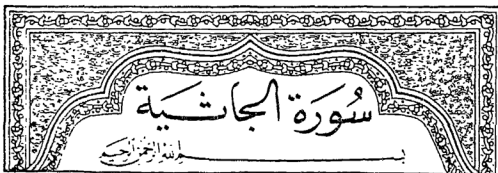 سُورَة الجاثية
بسم الله الرحمن الرحيم